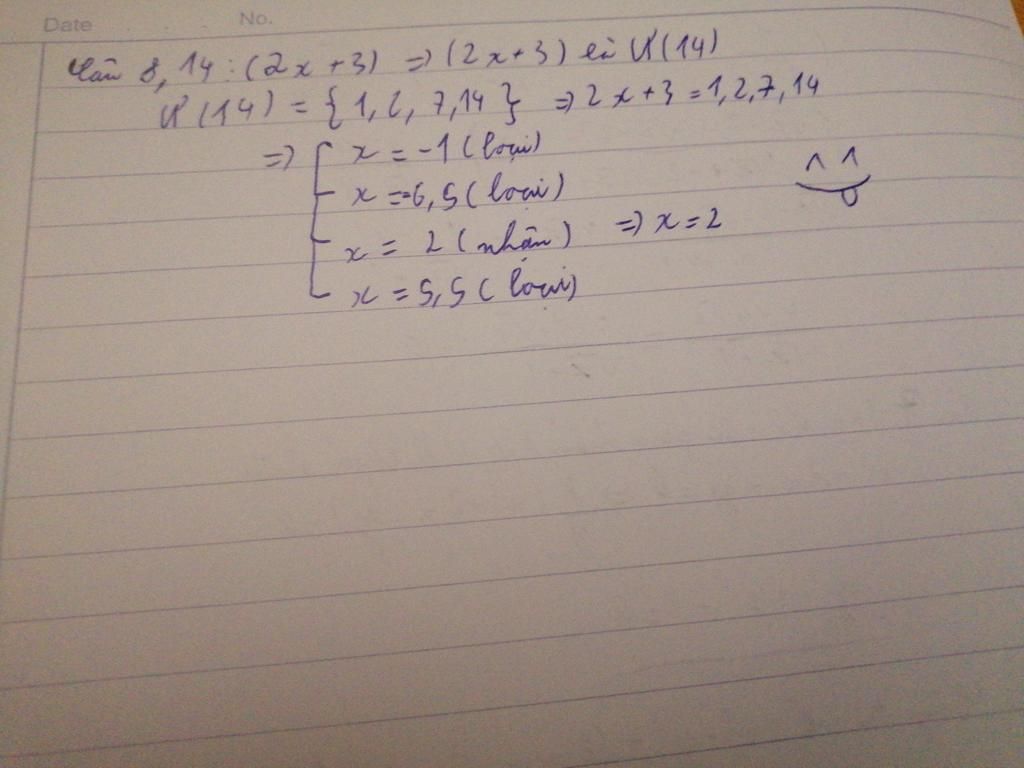 Date No.
Câu 8, 14 : (2x + 3) => (2x + 3) là Ư(14)
Ư(14) = { 1, 2, 7, 14 } => 2x + 3 = 1, 2, 7, 14
=> x = -1 (loại)
x = -0,5 (loại)
x = 2 (nhận) => x = 2
x = 5,5 (loại)